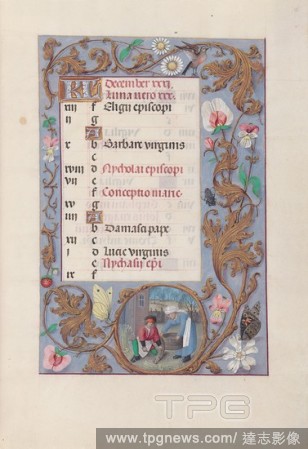 KL December xxxi
Luna ncio xxx
xiii f Eligii episcopi
ii g
A
x b Barbare virginis
c
xviii d Nycholai episcopi
vii e
f Conceptio marie
xv g
iiii A
b Damasii pape
xii c
i d Lucie virginis
e Nychasii epi
ix f
TPG
www.tpgnews.com/ 達志影像